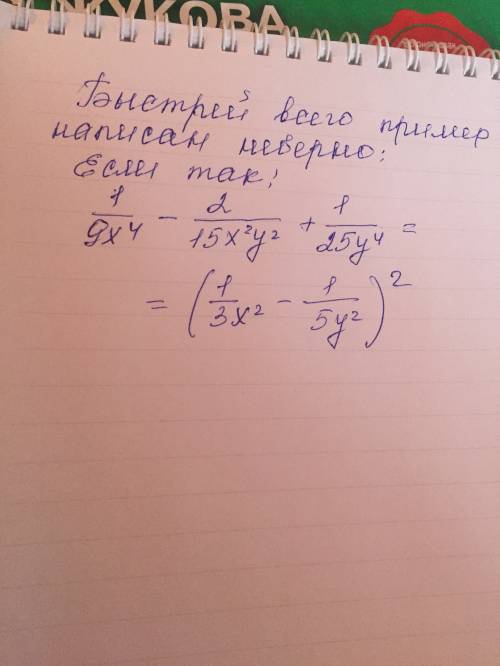 ЖУКОВА
Быстрей всего пример
написан неверно:
Если так:
1/9x⁴ − 2/15x²y² + 1/25y⁴ =
= (1/3x² − 1/5y²)²